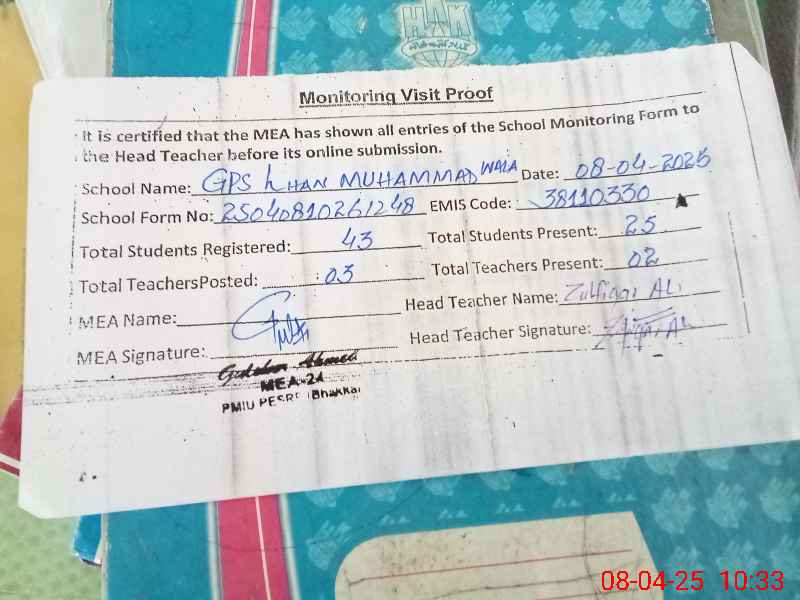 HAK
Monitoring Visit Proof
It is certified that the MEA has shown all entries of the School Monitoring Form to
the Head Teacher before its online submission.
School Name: GPS KHAN MUHAMMAD WALA Date: 08-04-2025
School Form No: 25040810261248 EMIS Code: 38110330
Total Students Registered: 43 Total Students Present: 25
Total TeachersPosted: 03 Total Teachers Present: 02
MEA Name: Head Teacher Name: Zulfiqar ALi
MEA Signature: Head Teacher Signature:
Ahmed
MEA-24
PMIU PESRP (Bhakkar
08-04-25 10:33